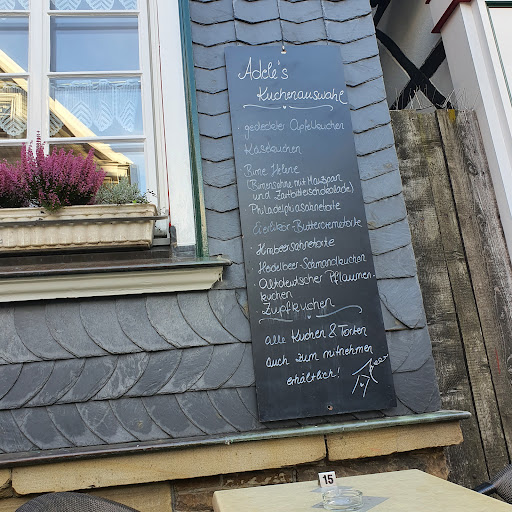 Adele's
Kuchenauswahl
gedeckter Apfelkuchen
Käsekuchen
Birne Helene
(Birnensahne mit Marzipan
und Zartbitterschokolade)
Philadelphiasahnetorte
Eierlikör-Buttercremetorte
Himbeersahnetorte
Heidelbeer-Schmandkuchen
Altdeutscher Pflaumen-
kuchen
Zupfkuchen
alle Kuchen & Torten
auch zum mitnehmen
erhältlich!
15